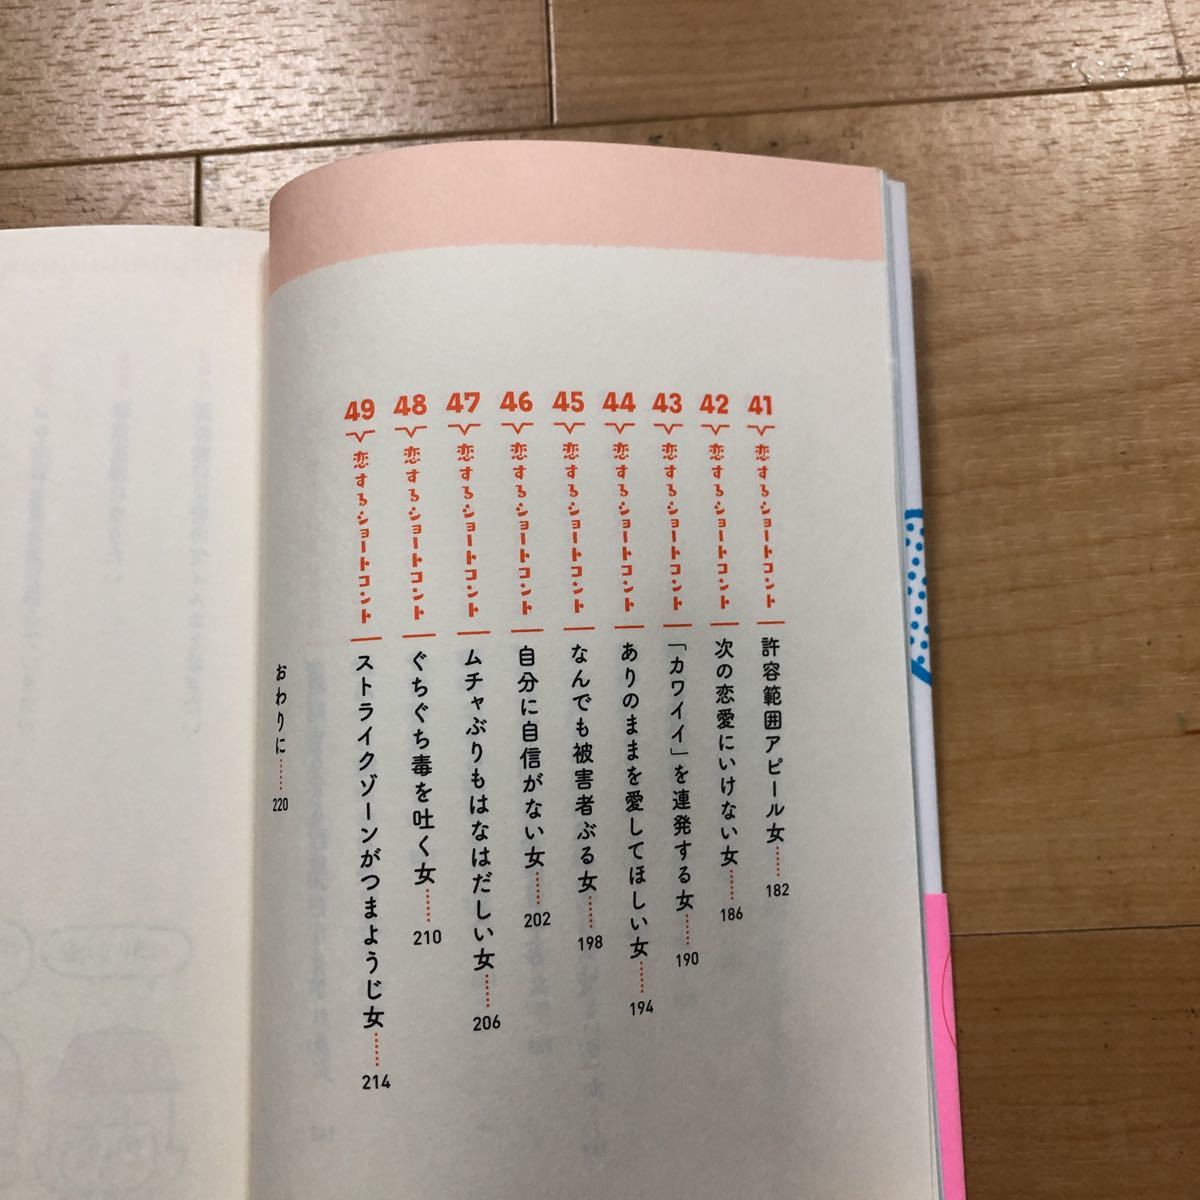 41 恋するショートコント 許容範囲アピール女……182
42 恋するショートコント 次の恋愛にいけない女……186
43 恋するショートコント 「カワイイ」を連発する女……190
44 恋するショートコント ありのままを愛してほしい女……194
45 恋するショートコント なんでも被害者ぶる女……198
46 恋するショートコント 自分に自信がない女……202
47 恋するショートコント ムチャぶりもはなはだしい女……206
48 恋するショートコント ぐちぐち毒を吐く女……210
49 恋するショートコント ストライクゾーンがつまようじ女……214
おわりに……220